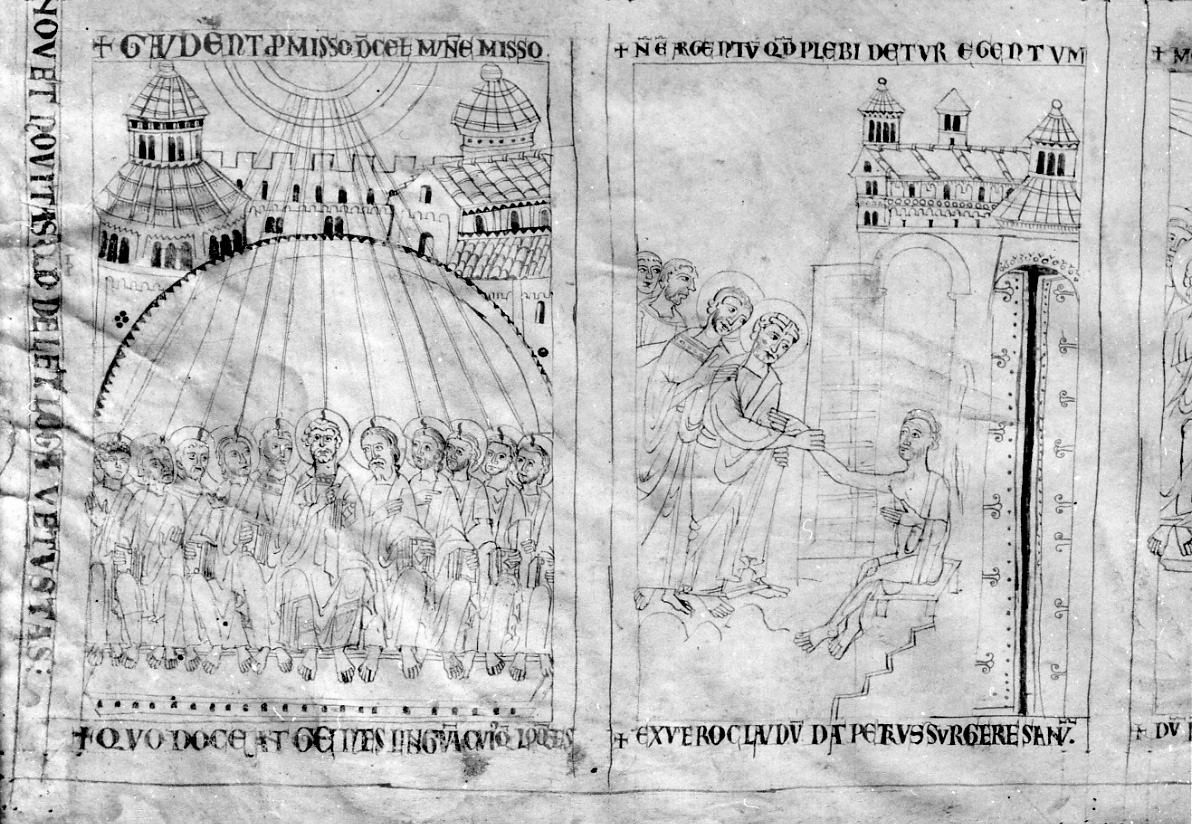 NOVET NOVITAS QD DE LEX LOGH VETUSTAS:
+ GAUDENT PMISSO D CEL MUNE MISSO
+ QUO DOCEAT GENTES LINGUA CUIQ LOQTES
+ N E ARGENTU QD PLEBI DETUR EGENTUM
+ EX VERO CLAUDU DAT PETRUS SURGERE SANU.
+ M
+ DU